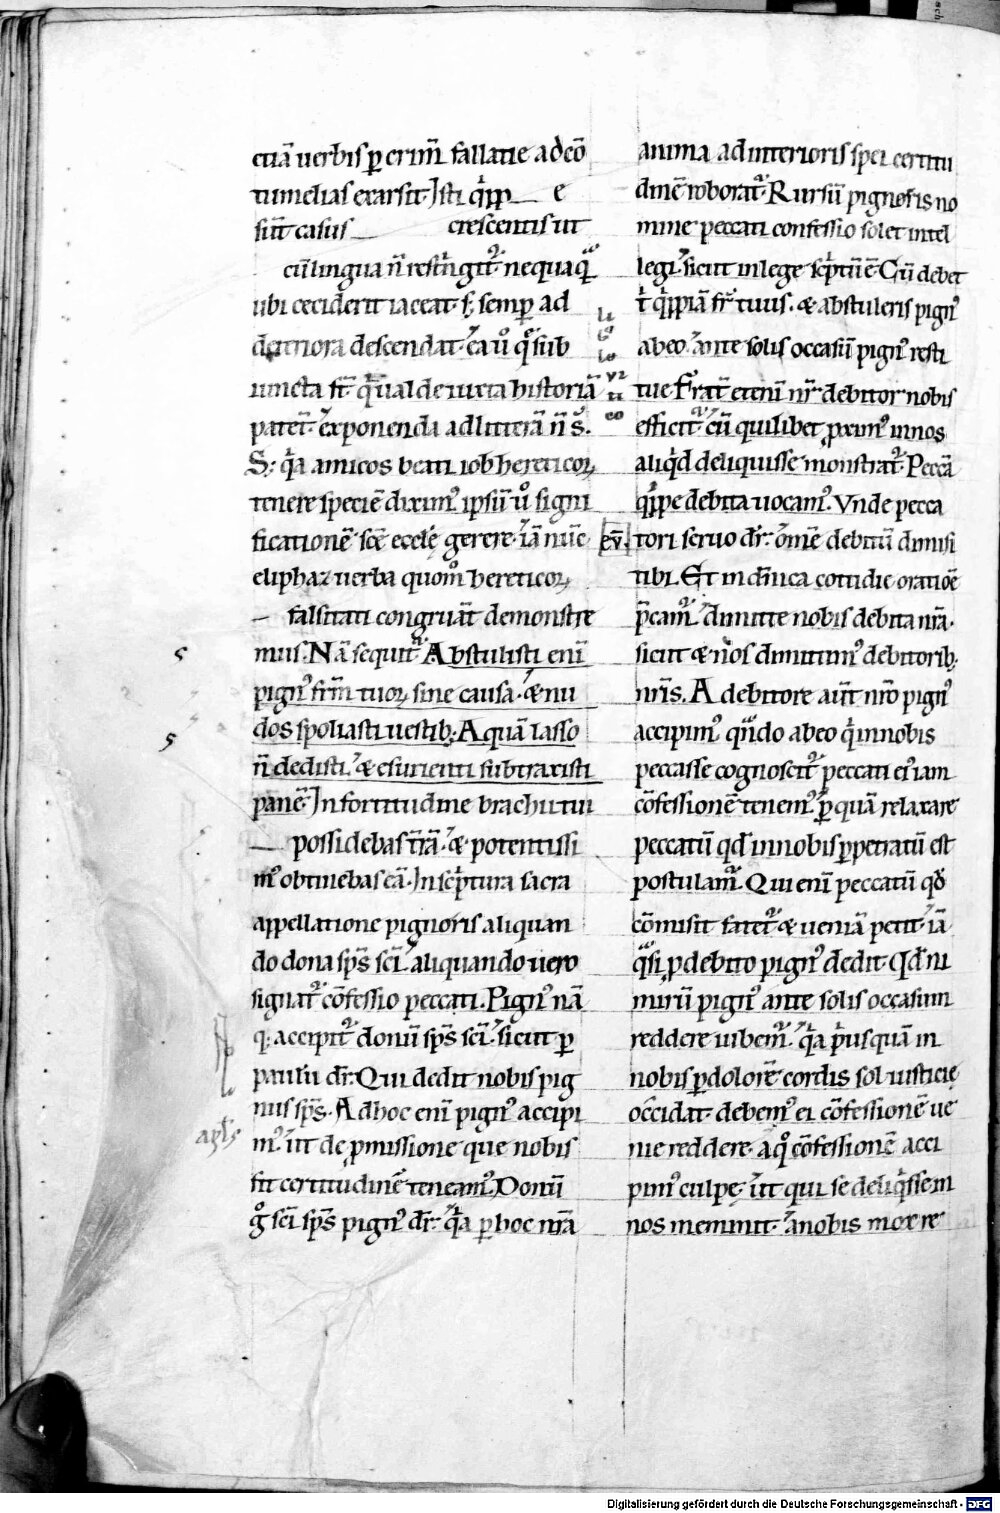 etiā uerbis p̲ crimī fallatie ad cō
tumelias exarsit. Isti q̇pp e
siūt casus crescentis ut
cū lingua n̄ restngit᷑ nequaq̄
ubi ceciderit iaceat. s; semp̲ ad
deteriora descendat. ea u̇ q̄ sub
iuncta st̄ q̇a ualde iuxta historiā
patet̄. exponenda ad litterā n̄ s̄.
S; q̇a amicos beati iob hereticoꝝ
tenere speciē diximꝰ ipsiū u̇ signi
ficationē scē ecclę gerere. iā nūc
eliphaz uerba quom̊ hereticoꝝ
falsitati congruāt demonstre
mus. Nā sequit᷑ Abstulisti eni
pignꝰ frm̄ tuoꝝ sine causa. & nu
dos spoliasti uestib; Aquā lasso
n̄ dedisti. & esurienti subtraxisti
panē. In fortitudine brachii tui
possidebas t̄rā. & potentissi
mꝰ obtinebas eā. In scptura sacra
appellatione pignoris aliquan
do dona sp̄s sc̄i. aliquando uero
signat᷑ cōfessio peccati. Pignꝰ nā
q; accipit᷑ donū sp̄s sc̄i. sicut p̲
paulū dr̄. Qui dedit nobis pig
nus sp̄s. Ad hoc eni pignꝰ accipi
mꝰ. ut de p̲missione que nobis
fit certitudinē teneamꝰ. Donū
g̊ sc̄i sp̄s pignꝰ dr̄. q̇a p̲ hoc nr̄a
anima ad interioris spei certitu
dinē roborat᷑. Rursū pignoris no
mine peccati confessio solet intel
legi. sicut in lege scptū ē. Cū debet
t̄ q̇ppiā fr̄ tuus. & abstuleris pignꝰ
ab eo. ante solis occasū pignꝰ resti
tue. Frat̄ eteni nr̄ debitor nobis
efficit᷑. cū quilibet p̲ximꝰ in nos
aliq̇d deliquisse monstrat᷑. Peccā
q̇ppe debita uocamꝰ. Vnde pecca
tori seruo dr̄. omē debitū dimisi
tibi. Et in dn̄ica cottidie oratiōe
p̄camꝰ. dimitte nobis debita nr̄a.
sicut & nos dimittimꝰ debitorib;
nr̄is. A debitore aut̄ nr̄o pignꝰ
accipimꝰ qn̄do ab eo q̇ in nobis
peccasse cognoscit᷑ peccati eiꝰ iam
cōfessionē tenemꝰ. p̲ quā relaxare
peccatū qd̄ in nobis p̲petratū est
postulamꝰ. Qui eni peccatū qd̄
cōmisit fatet᷑ & ueniā petit. iā
q̄si p̲ debito pignꝰ dedit. Qd̄ ni
mirū pignꝰ ante solis occasum
reddere iubemꝰ. q̇a p̄usquā in
nobis p̲ dolorē cordis sol iusticię
occidat. debemꝰ ei cōfessionē ue
nie reddere. a q̊ cōfessionē acci
pimꝰ culpe. ut qui se deliq̇sse in
nos meminit. a nobis mox re
eṽ.
apl̄s
Digitalisierung gefördert durch die Deutsche Forschungsgemeinschaft - DFG